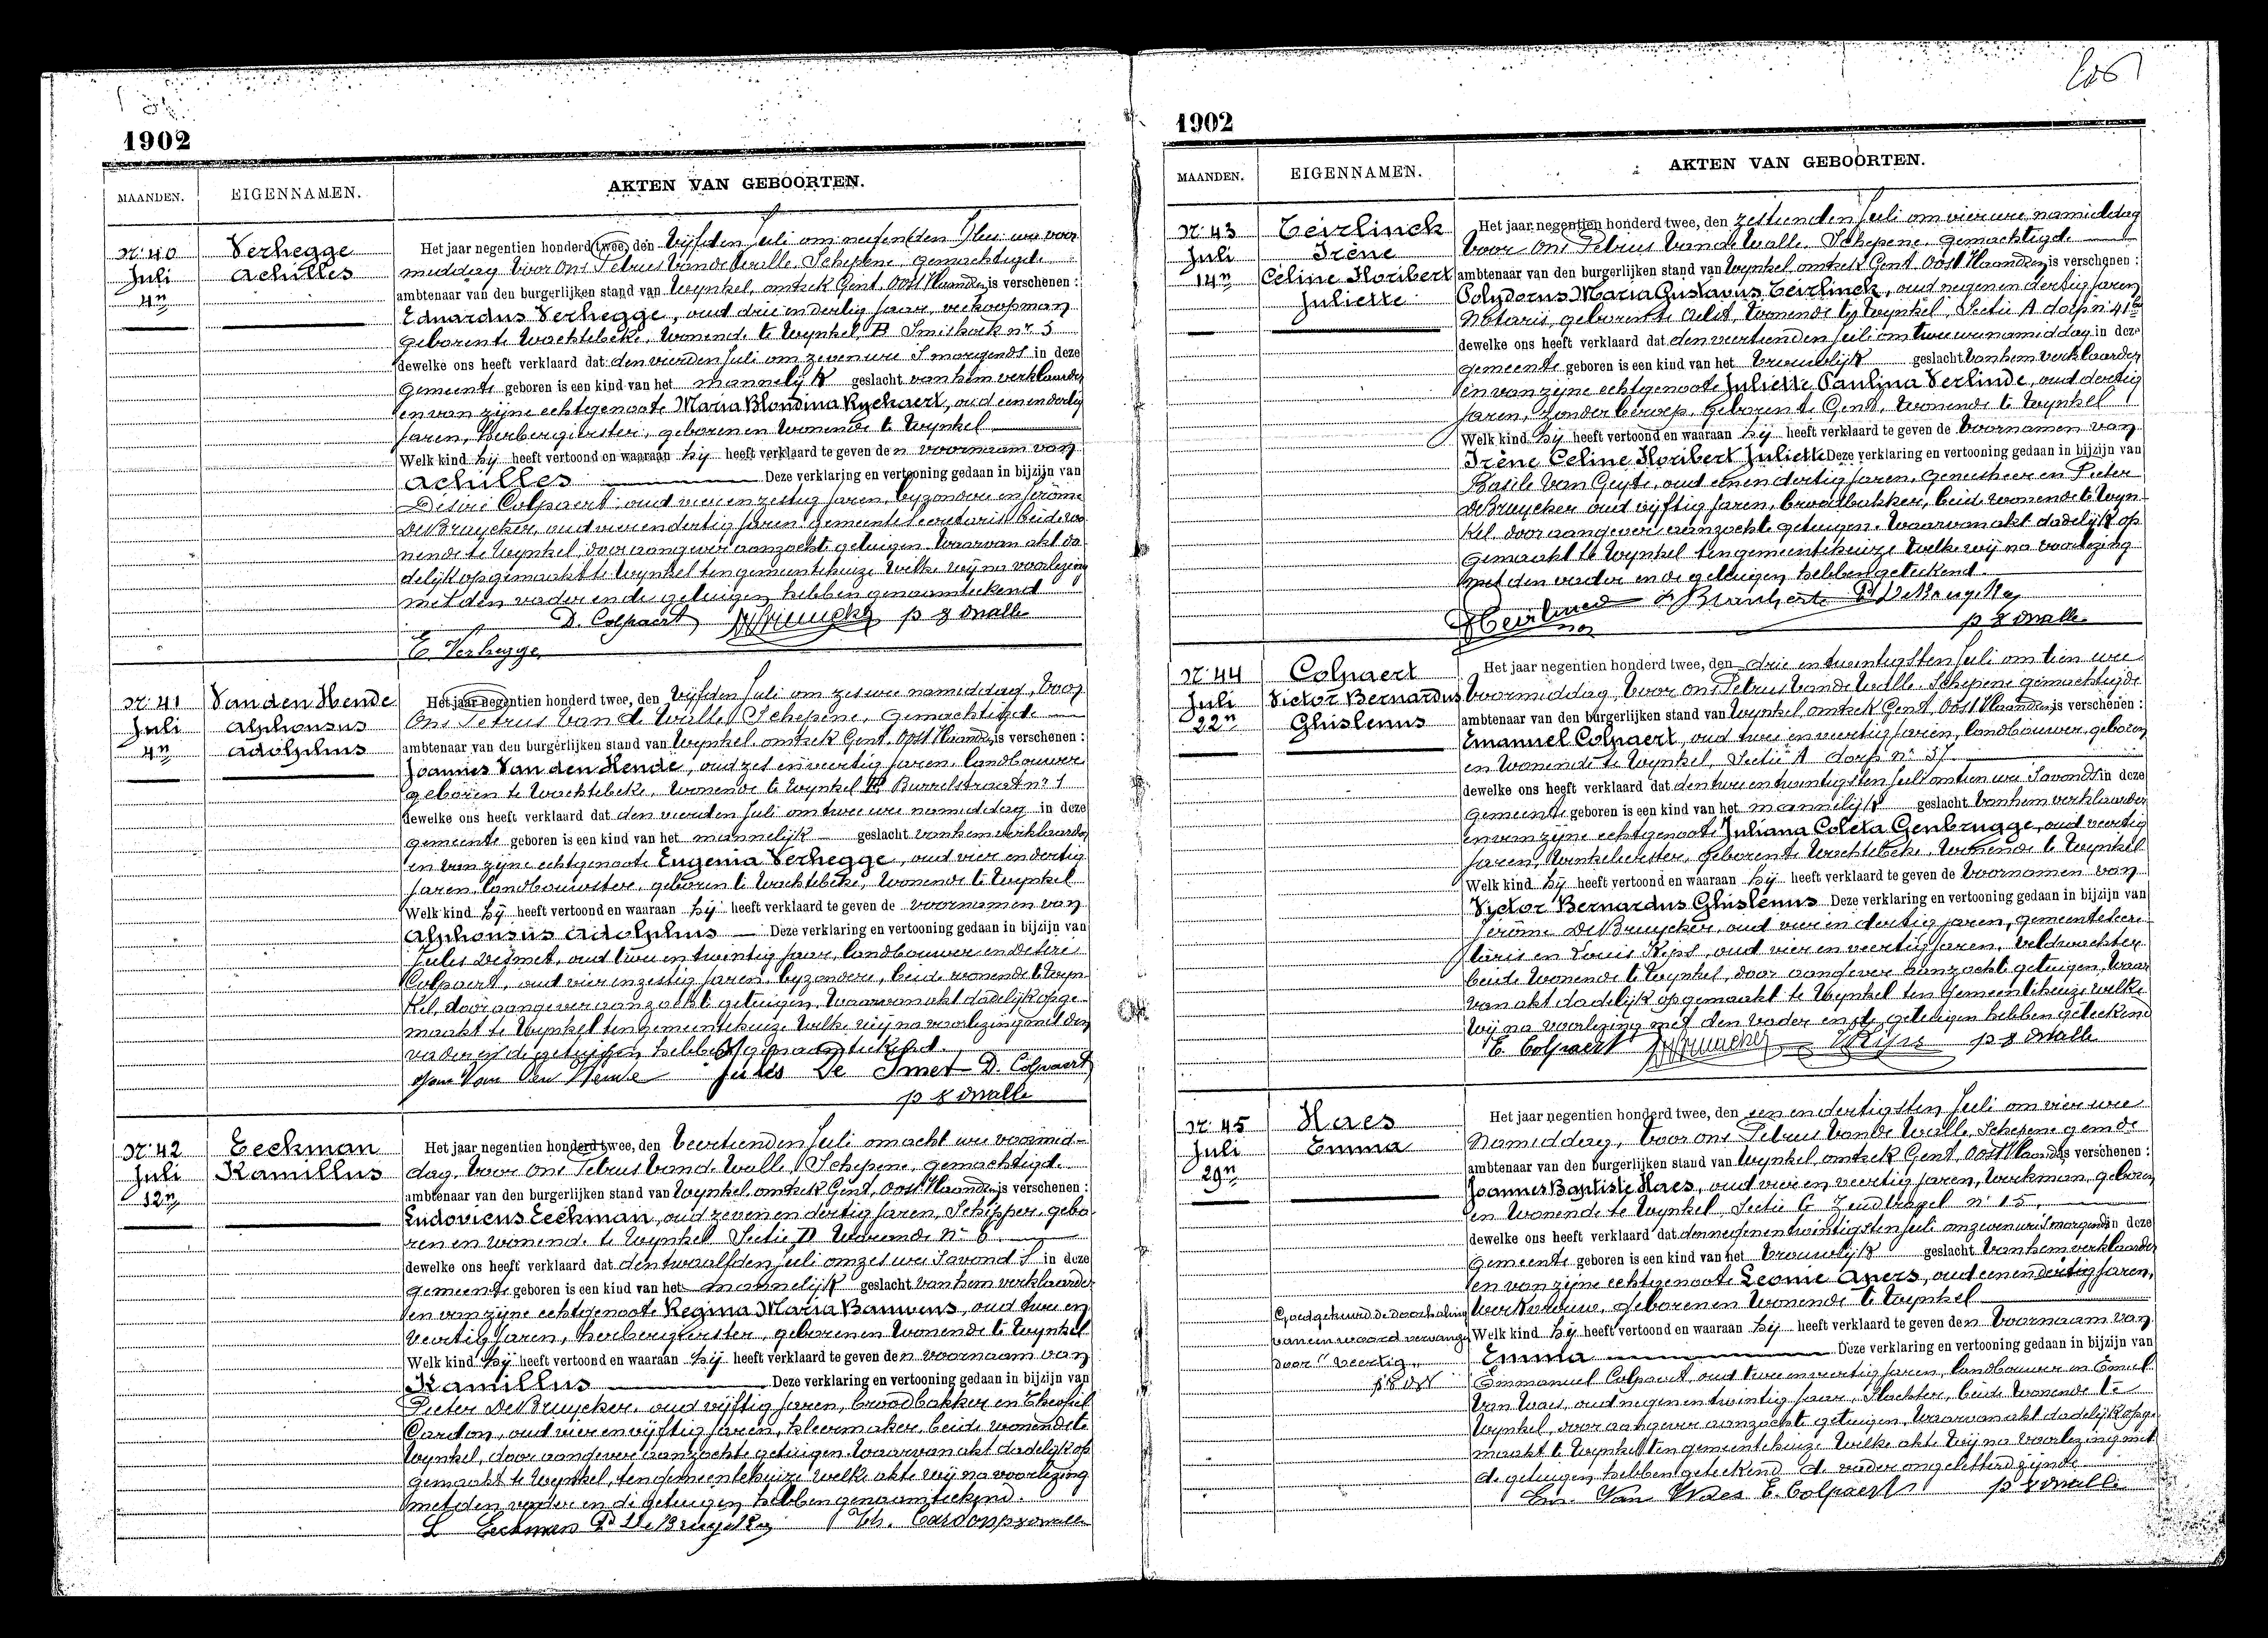 1902
MAANDEN. EIGENNAMEN. AKTEN VAN GEBOORTEN.
Nr. 40 Verhegge
Juli Achilles
4n
Het jaar negentien honderd twee, den vijfden Juli om negen uur voor
middag voor ons Petrus Van de Walle, Schepene, gemachtigde
ambtenaar van den burgerlijken stand van Wynkel, omtrek Gent, Oost Vlaanderen is verschenen :
Eduardus Verhegge, oud drie en dertig jaar, veekoopman
geboren te Wachtebeke, wonende te Wynkel, B Smishoek nr 5
dewelke ons heeft verklaard dat den vierden Juli om zeven ure S morgends in deze
gemeente geboren is een kind van het mannelijk geslacht van hem verklaarder
en van zijne echtgenoote Maria Blondina Ryckaert, oud een en dertig
jaren, herbergierster, geboren en wonende te Wynkel
Welk kind hij heeft vertoond en waaraan hij heeft verklaard te geven den voornaam van
Achilles Deze verklaring en vertooning gedaan in bijzijn van
Désiré Colpaert, oud vier en zestig jaren, byzondere en Jérôme
De Bruycker, oud vier en dertig jaren gemeente Secretaris beide wo
nende te Wynkel, door aangever aanzochte getuigen. Waarvan akt da
delijk opgemaakt te Wynkel ten gemeentehuize welke wij na voorlezing
met den vader en de getuigen hebben genaamteekend
D. Colpaert p v d walle
E. Verhegge
Nr. 41 Van den Hende
Juli Alphonsus
4n Adolphus
Het jaar negentien honderd twee, den vijfden Juli om zes ure namiddag, voor
ons Petrus Van de Walle, Schepene, gemachtigde
ambtenaar van den burgerlijken stand van Wynkel, omtrek Gent, Oost Vlaanderen is verschenen :
Joannes Van den Hende, oud zes en veertig jaren, landbouwer
geboren te Wachtebeke, wonende te Wynkel B Burrelstraat nr 1
dewelke ons heeft verklaard dat den vierden Juli om twee ure namiddag in deze
gemeente geboren is een kind van het mannelijk geslacht van hem verklaarder
en van zijne echtgenoote Eugenia Verhegge, oud vier en dertig
jaren, landbouwster, geboren te Wachtebeke, wonende te Wynkel
Welk kind hij heeft vertoond en waaraan hij heeft verklaard te geven de voornamen van
Alphonsus Adolphus Deze verklaring en vertooning gedaan in bijzijn van
Jules Desmet, oud twee en twintig jaar, landbouwer en Desiré
Colpaert, oud vier en zestig jaren, byzondere, beide wonende te Wyn
kel, door aangever aanzochte getuigen, waarvan akt dadelijk opge
maakt te Wynkel ten gemeentehuize welke wij na voorlezing met den
vader en de getuigen hebben genaamteekend.
Van Den Hende Jules De Smet D. Colpaert
p v d walle
Nr. 42 Eeckman
Juli Kamillus
12n
Het jaar negentien honderd twee, den veertienden Juli om acht ure voormid-
dag, voor ons Petrus Van de Walle, Schepene, gemachtigde
ambtenaar van den burgerlijken stand van Wynkel, omtrek Gent, Oost Vlaanderen is verschenen :
Ludovicus Eeckman, oud zeven en dertig jaren, Schipper, gebo
ren en wonende te Wynkel Sectie D Warande Nr 6
dewelke ons heeft verklaard dat den twaalfden Juli om zes ure S avonds in deze
gemeente geboren is een kind van het mannelijk geslacht van hem verklaarder
en van zijne echtgenoote Regina Maria Bauwens, oud twee en
veertig jaren, herbergierster, geboren en wonende te Wynkel
Welk kind hij heeft vertoond en waaraan hij heeft verklaard te geven den voornaam van
Kamillus Deze verklaring en vertooning gedaan in bijzijn van
Pieter De Bruycker, oud vijftig jaren, broodbakker en Theophil
Cardon, oud vier en vijftig jaren, kleermaker, beide wonende te
Wynkel, door aangever aanzochte getuigen. Waarvan akt dadelijk op
gemaakt te Wynkel, ten gemeentehuize welke akte wij na voorlezing
met den vader en de getuigen hebben genaamteekend.
L Eeckman Pr De Bruycker Th. Cardon p v d walle
1902
MAANDEN. EIGENNAMEN. AKTEN VAN GEBOORTEN.
Nr. 43 Teirlinck
Juli Irène
14n Céline Floribert
Juliette
Het jaar negentien honderd twee, den zestienden Juli om vier ure namiddag
voor ons Petrus Van de Walle, Schepene, gemachtigde
ambtenaar van den burgerlijken stand van Wynkel, omtrek Gent, Oost Vlaanderen is verschenen :
Polydorus Maria Gustavus Teirlinck, oud negen en dertig jaren
Notaris, geboren te Aelst, wonende te Wynkel, Sectie A dorp n 41
dewelke ons heeft verklaard dat den veertienden Juli om twee ure namiddag in deze
gemeente geboren is een kind van het vrouwelijk geslacht van hem verklaarder
en van zijne echtgenoote Juliette Paulina Verlinde, oud dertig
jaren, zonder beroep, geboren te Gent, wonende te Wynkel
Welk kind hij heeft vertoond en waaraan hij heeft verklaard te geven de voornamen van
Irène Celine Floribert Juliette Deze verklaring en vertooning gedaan in bijzijn van
Basile Van Geyte, oud een en dertig jaren, geneesheer en Pieter
De Bruycker oud vijftig jaren, broodbakker, beide wonende te Wyn
kel, door aangever aanzochte getuigen. Waarvan akt dadelijk op
gemaakt te Wynkel ten gemeentehuize welke wij na voorlezing
met den vader en de getuigen hebben geteekend.
Pr De Bruycker
p v d walle
Nr. 44 Colpaert
Juli Victor Bernardus
22n Ghislenus
Het jaar negentien honderd twee, den drie en twintigsten Juli om tien ure
voormiddag, voor ons Petrus Van de Walle, Schepene gemachtigde
ambtenaar van den burgerlijken stand van Wynkel, omtrek Gent, Oost Vlaanderen is verschenen :
Emanuel Colpaert, oud twee en veertig jaren, landbouwer, geboren
en wonende te Wynkel, Sectie A dorp nr 37
dewelke ons heeft verklaard dat den twee en twintigsten Juli om tien ure S avonds in deze
gemeente geboren is een kind van het mannelijk geslacht van hem verklaarder
en van zijne echtgenoote Juliana Coleta Genbrugge, oud veertig
jaren, winkelierster, geboren te Wachtebeke, wonende te Wynkel
Welk kind hij heeft vertoond en waaraan hij heeft verklaard te geven de voornamen van
Victor Bernardus Ghislenus Deze verklaring en vertooning gedaan in bijzijn van
Jérôme De Bruycker, oud vier en dertig jaren, gemeentesecre
taris en Louis Kips, oud vier en veertig jaren, veldwachter
beide wonende te Wynkel, door aangever aanzochte getuigen, waar
van akt dadelijk opgemaakt te Wynkel ten gemeentehuize welke
wij na voorlezing met den vader en de getuigen hebben geteekend
E. Colpaert p v d walle
Nr. 45 Haes
Juli Emma
29n
Het jaar negentien honderd twee, den een en dertigsten Juli om vier ure
namiddag, voor ons Petrus Van de Walle, Schepene gemde
ambtenaar van den burgerlijken stand van Wynkel, omtrek Gent, Oost Vlaanderen is verschenen :
Joannes Baptiste Haes, oud vier en veertig jaren, werkman, geboren
en wonende te Wynkel, Sectie C Zeudbragel nr 15
dewelke ons heeft verklaard dat den negen en twintigsten Juli om zeven ure S morgends in deze
gemeente geboren is een kind van het vrouwelijk geslacht van hem verklaarder
en van zijne echtgenoote Leonie Apers, oud een en dertig jaren,
werkvrouw, geboren en wonende te Wynkel
Goedgekeurd de doorhaling
van een woord vervangen
door "veertig"
Welk kind hij heeft vertoond en waaraan hij heeft verklaard te geven den voornaam van
Emma Deze verklaring en vertooning gedaan in bijzijn van
Emmanuel Colpaert, oud twee en veertig jaren, landbouwer en Emiel
Van Waes, oud negen en twintig jaar, Slachter, beide wonende te
Wynkel, door aangever aanzochte getuigen, Waarvan akt dadelijk opge
maakt te Wynkel ten gemeentehuize welke akte wij na voorlezing met
de getuigen hebben geteekend de vader ongeletterd zijnde
Em. Van Waes E. Colpaert p v d walle